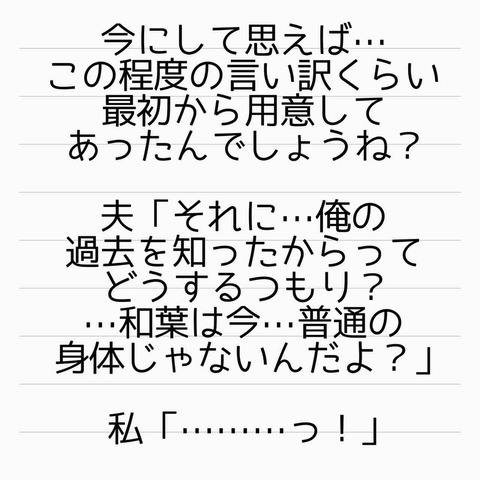 今にして思えば…
この程度の言い訳くらい
最初から用意して
あったんでしょうね？
夫「それに…俺の
過去を知ったからって
どうするつもり？
…和葉は今…普通の
身体じゃないんだよ？」
私「………っ！」